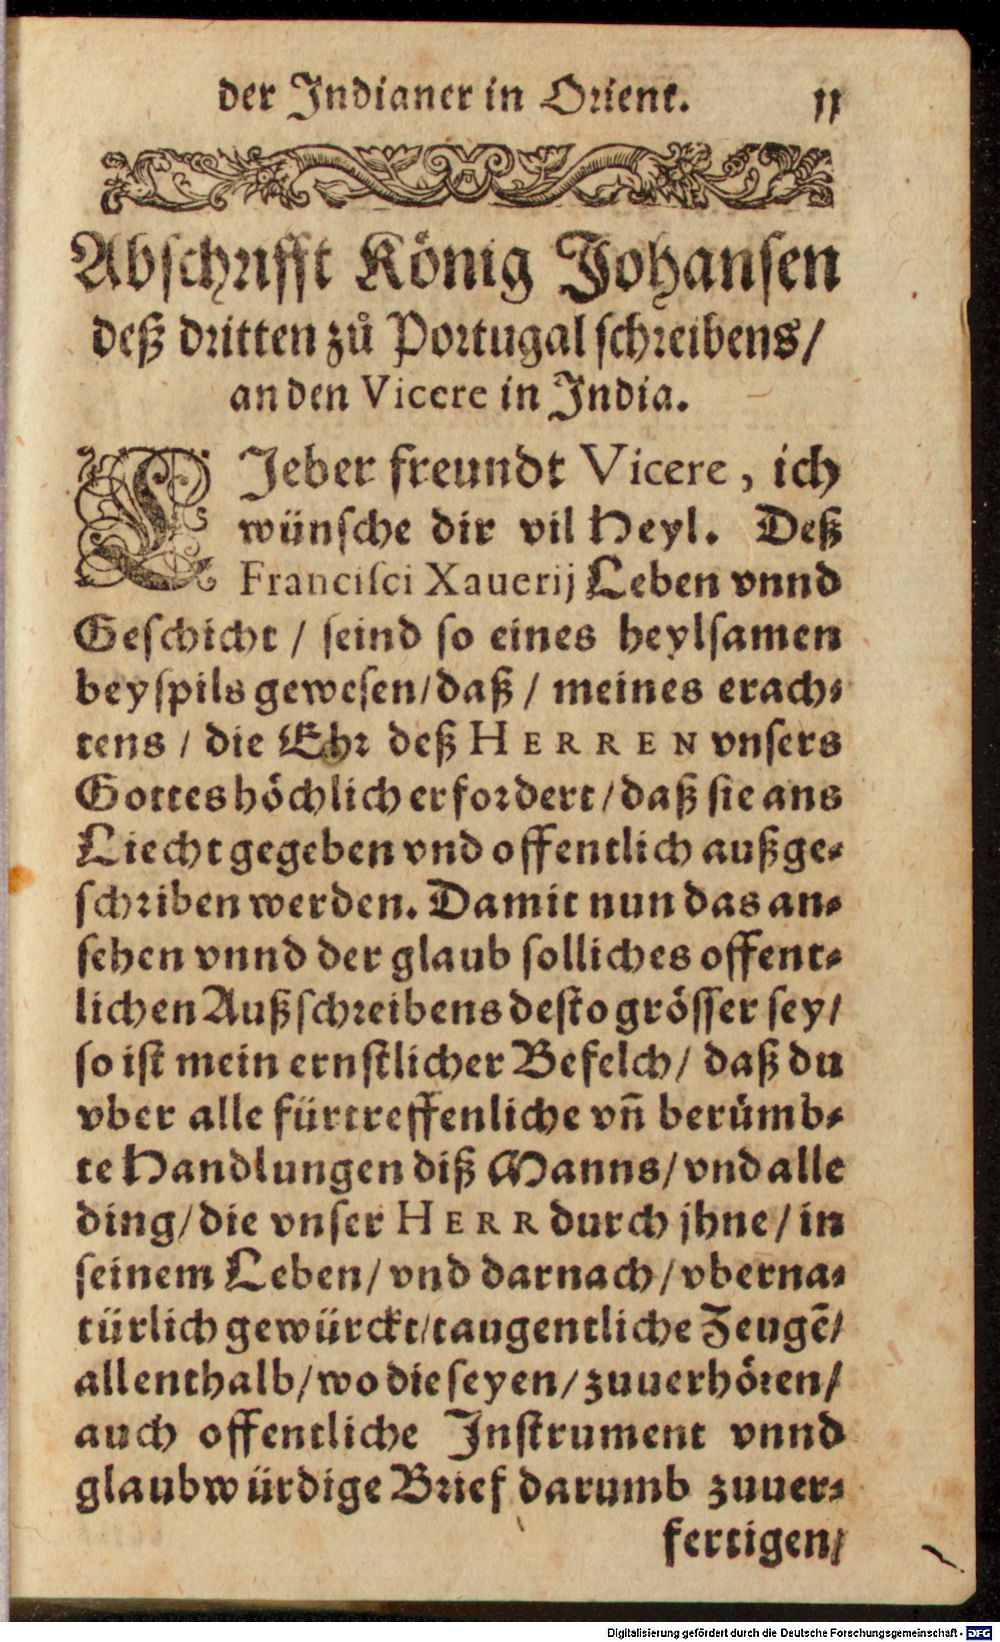 der Indianer in Orient. 11
Abschrifft König Johansen
deß dritten zů Portugal schreibens/
an den Vicere in India.
LIeber freundt Vicere, ich
wünsche dir vil Heyl. Deß
Francisci Xauerij Leben vnnd
Geschicht / seind so eines heylsamen
beyspils gewesen/daß / meines erach-
tens / die Ehr deß HERREN vnsers
Gottes höchlich erfordert/daß sie ans
Liecht gegeben vnd offentlich außge-
schriben werden. Damit nun das an-
sehen vnnd der glaub solliches offent-
lichen Außschreibens desto grösser sey/
so ist mein ernstlicher Befelch/ daß du
vber alle fürtreffenliche vñ berümb-
te Handlungen diß Manns/vnd alle
ding/die vnser HERR durch jhne/in
seinem Leben/vnd darnach/vberna-
türlich gewürckt/taugentliche Zeugẽ/
allenthalb/wo die seyen/zuuerhören/
auch offentliche Instrument vnnd
glaubwürdige Brief darumb zuuer-
fertigen/
Digitalisierung gefördert durch die Deutsche Forschungsgemeinschaft - DFG